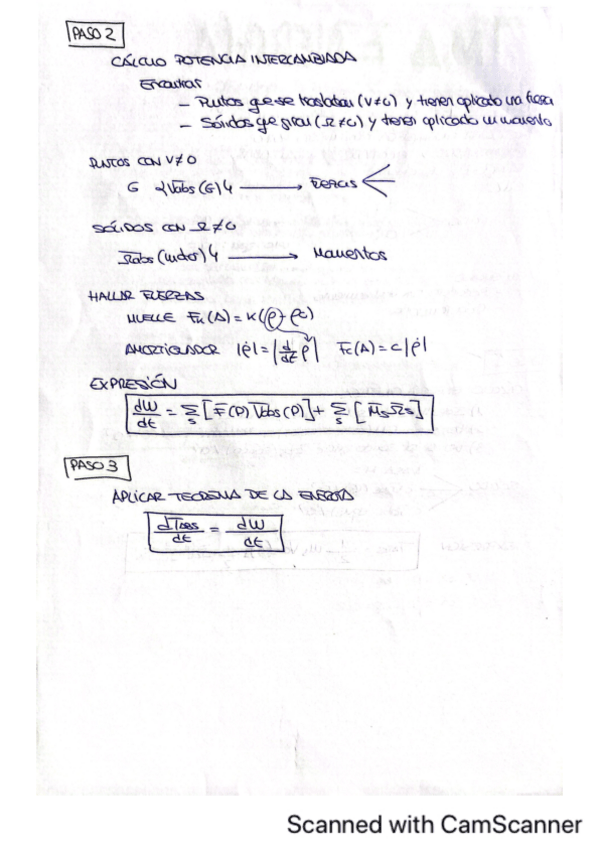 PASO 2
CÁLCULO POTENCIA INTERCAMBIADA
Encontrar
– Puntos que se trasladan (V≠0) y tienen aplicado una fuerza
– Sólidos que giran (Ω≠0) y tienen aplicado un momento
PUNTOS CON V≠0
G {V̄abs (G)} → FUERZAS
SÓLIDOS CON Ω≠0
Ω̄abs (motor)} → Momentos
HALLAR FUERZAS
MUELLE F̄k(A) = K(ρ - ρ0)
AMORTIGUADOR |ρ̇| = |d/dt ρ| F̄c(A) = c|ρ̇|
EXPRESIÓN
dW/dt = Σs [F̄(P) V̄abs(P)] + Σs [M̄s Ω̄s]
PASO 3
APLICAR TEOREMA DE LA ENERGÍA
dTabs/dt = dW/dt
Scanned with CamScanner